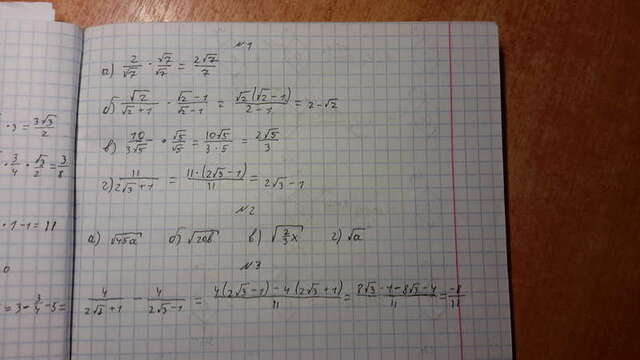 · 3 = 3√3/2
· 3/4 · √2/2 = 3/8
· 1 - 1 = 11
0
= 3 - 3/4 - 5 =
№1
а) 2/√7 · √7/√7 = 2√7/7
б) √2/(√2+1) · (√2-1)/(√2-1) = √2(√2-1)/(2-1) = 2-√2
в) 10/(3√5) · √5/√5 = 10√5/(3·5) = 2√5/3
г) 11/(2√3+1) = 11·(2√3-1)/11 = 2√3-1
№2
а) √45a б) √20b в) √(2/3 x) г) √a
№3
4/(2√3+1) - 4/(2√3-1) = (4(2√3-1)-4(2√3+1))/11 = (8√3-4-8√3-4)/11 = -8/11